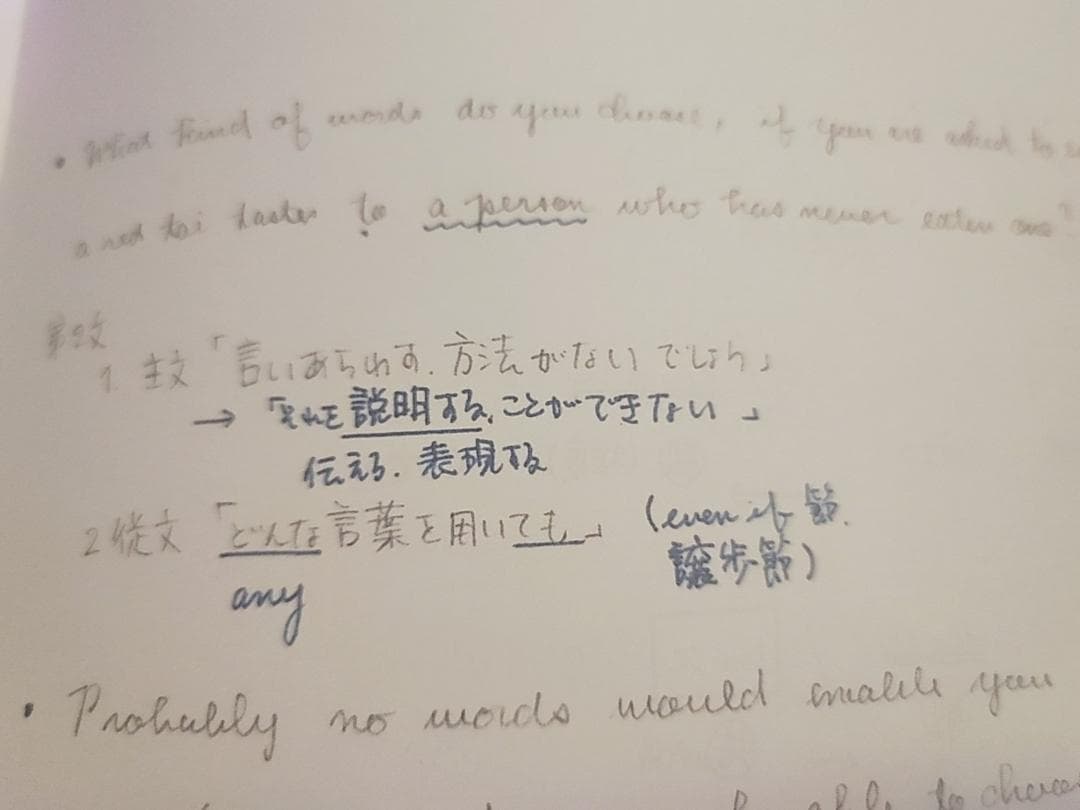 • What kind of words do you choose, if you are asked to
a red tai tastes to a person who has never eaten one?
第2文
1. 主文「言いあらわす. 方法がないでしょう」
→「それを説明する. ことができない」
伝える. 表現する
2 従文「どんな言葉を用いても」(even if 節.
any 譲歩節)
• Probably no words would enable you
able to